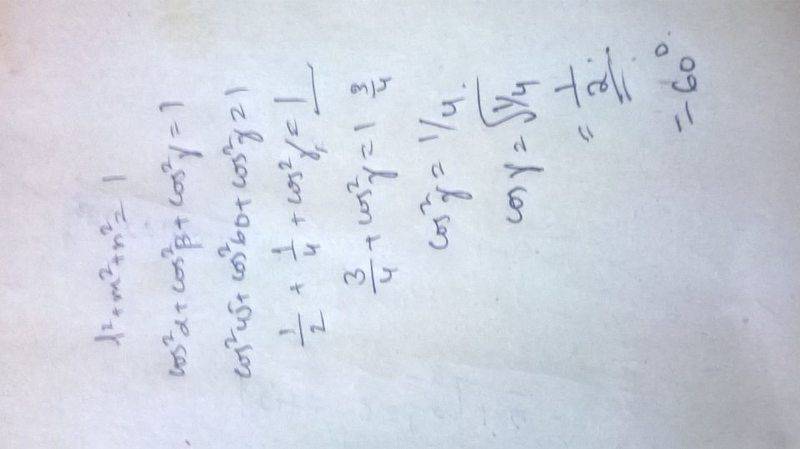 l²+m²+n²=1
cos²α+cos²β+cos²γ=1
cos²45+cos²60+cos²γ=1
1/2 + 1/4 + cos²γ=1
3/4 + cos²γ=1 3/4
cos²γ=1/4.
cosγ=√1/4
= 1/2.
=60°.